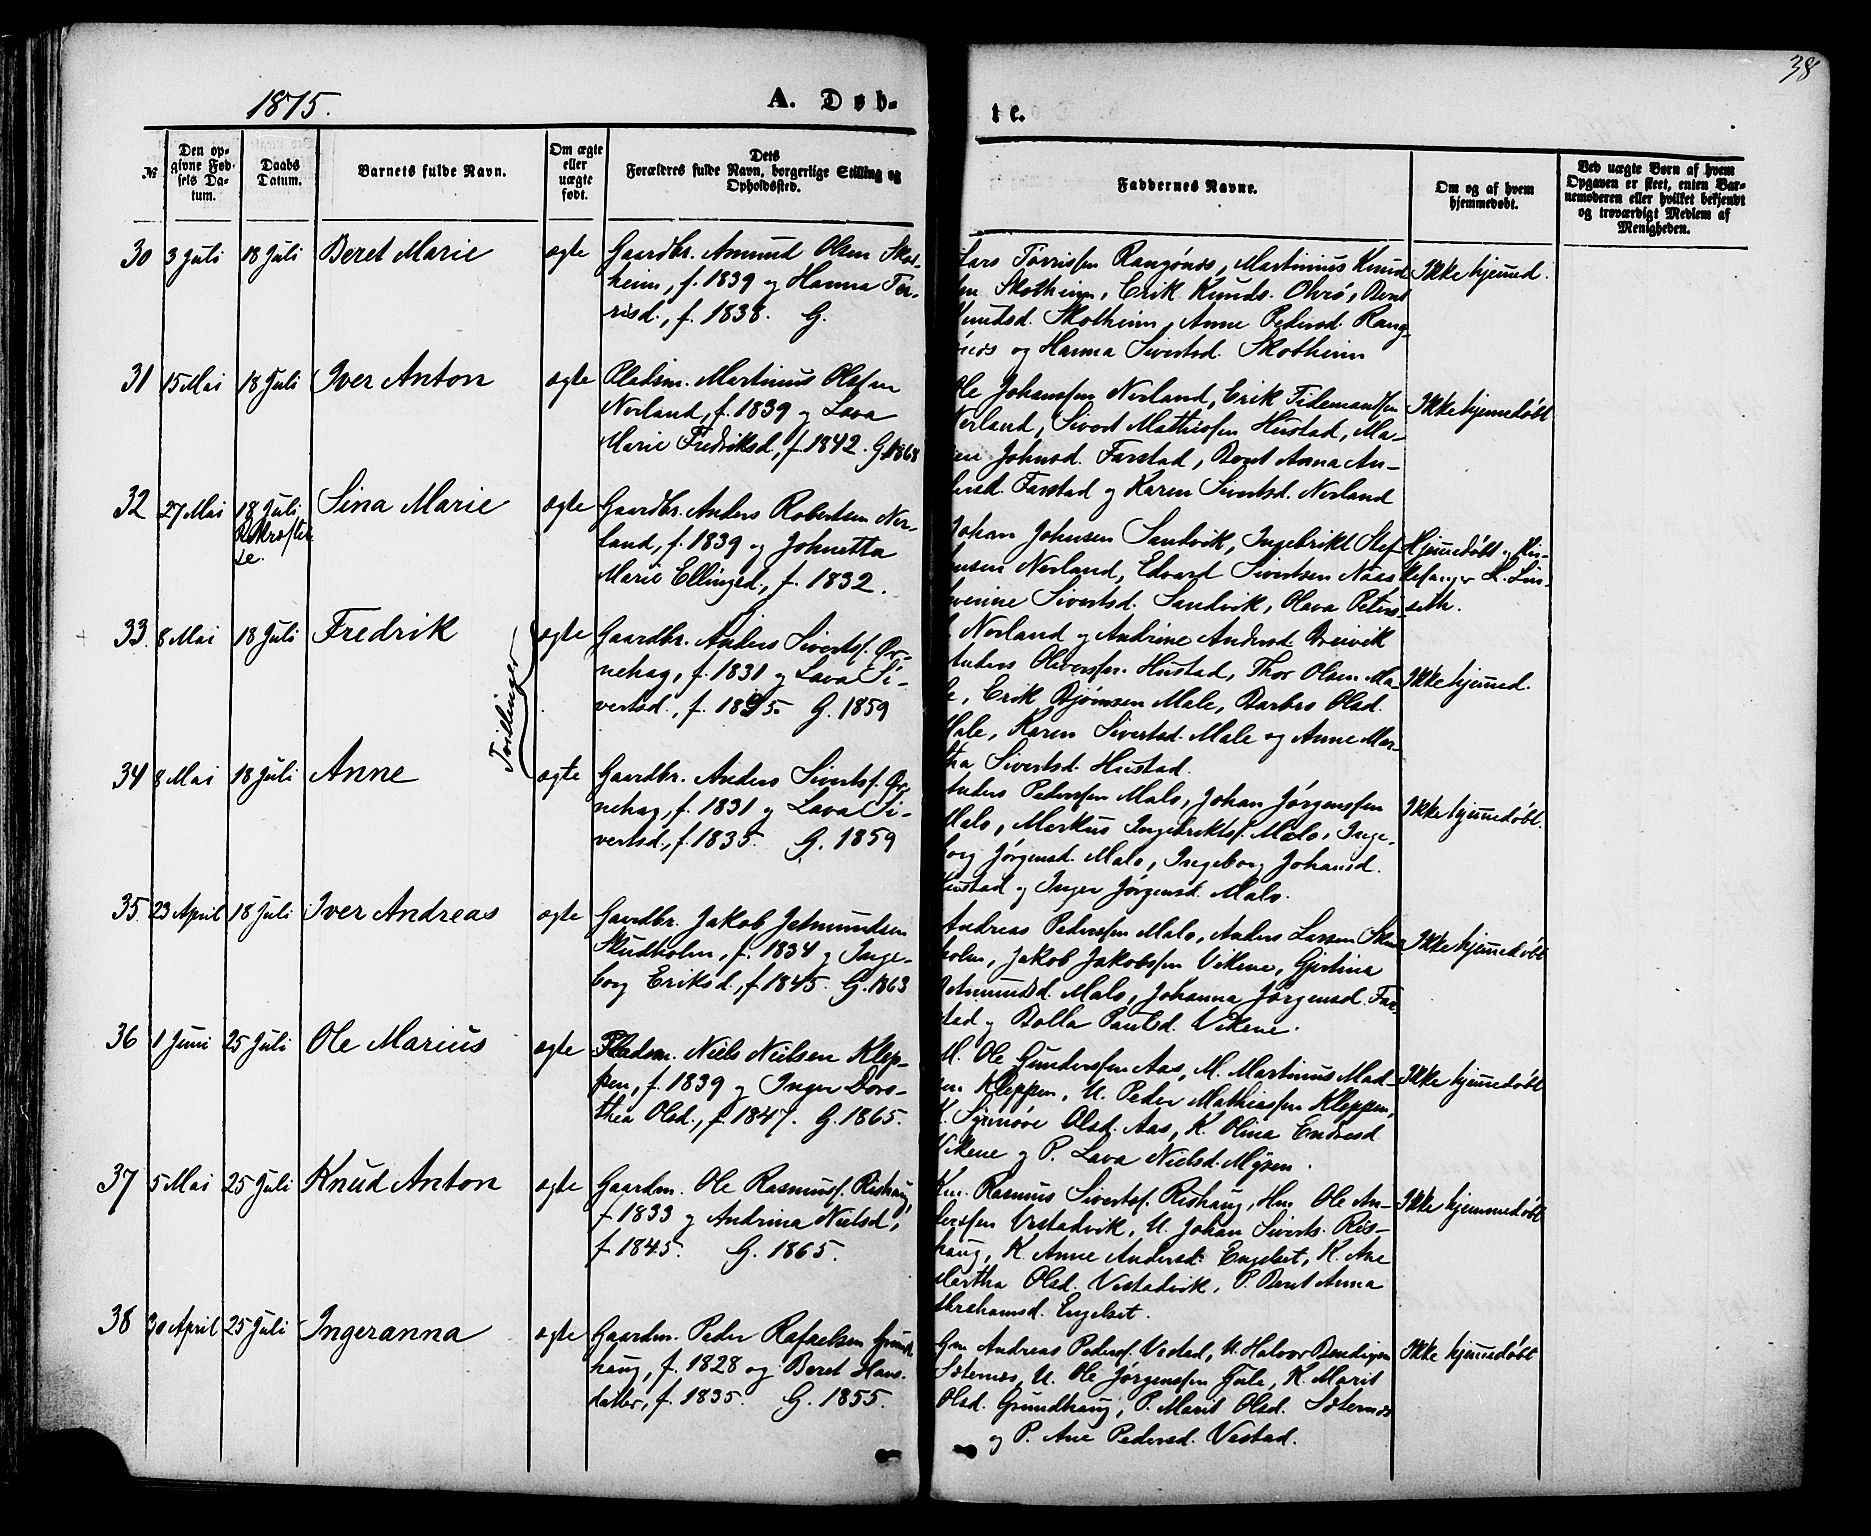 38
1875.
A. Døb-
te.
№
Den op-
givne Fød-
sels Da-
tum.
Daabs
Datum.
Barnets fulde Navn.
Om ægte
eller
uægte
født.
Dets
Forældres fulde Navn, borgerlige Stilling og
Opholdssted.
Faddernes Navne.
Om og af hvem
hjemmedøbt.
Ved uægte Børn af hvem
Opgaven er skeet, enten Bar-
nemoderen eller hvilket bekjendt
og troværdigt Medlem af
Menigheden.
30 3 Juli 18 Juli Beret Marie ægte Gaardbr. Amund Olsen Skot-
heim, f. 1839 og Hanna Tor-
risd., f. 1838. G.
Lars Torrissen Rangønes, Martinius Knud
sen Skotheim, Erik Knuds. Ohrø, Beret
Knudsd. Skotheim, Anne Pedersd. Rang-
ønes og Hanna Sivertsd. Skotheim
Ikke hjemmd.
31 15 Mai 18 Juli Iver Anton ægte Pladsm. Martinus Olsen
Norland, f. 1839 og Lava
Marie Fredriksd., f. 1842. G. 1868
Ole Johanssen Norland, Erik Fidemandsen
Norland, Sivert Mathissen Hustad, Ma-
ren Johnsd. Farstad, Beret Anna An-
dersd. Farstad og Karen Sivertsd. Norland
Ikke hjemmedøbt
32 27 Mai 18 Juli Bekræftel
se. Sina Marie ægte Gaardbr. Anders Robertsen Nor-
land, f. 1839 og Johnetta
Marie Ellingsd., f. 1832.
Johan Johnsen Sandvik, Ingebrikt Stef-
fensen Norland, Edvard Sivertsen Naas
Sivertsd. Sandvik, Olava Peters
d. Norland og Andrine Andersd. Breivik
Hjemmedøbt af Kir-
kesanger L. Lin-
seth.
33. 8 Mai 18 Juli Fredrik ægte Gaardbr. Anders Sivertsf. Ør-
nehag, f. 1831 og Lava Si-
vertsd., f. 1835. G. 1859
Anders Oliverssen Hustad, Thor Olsen Ma-
le, Erik Bjørnsen Male, Barbro Olsd.
Male, Karen Sivertsd. Male og Anne Mar-
tha Sivertsd. Hustad.
Ikke hjemmd.
Tvillinger
34 8 Mai 18 Juli Anne ægte Gaardbr. Anders Sivertsf. Ør-
nehag, f. 1831 og Lava Si-
vertsd., f. 1835. G. 1859
Anders Pederssen Malo, Johan Jørgenssen
Malo, Markus Ingebriktsf. Malo, Inge-
borg Jørgensd. Malo, Ingeborg Johansd.
Hustad og Inger Jørgensd. Malo.
Ikke hjemmedøbt.
35. 23 April 18 Juli Iver Andreas ægte Gaardbr. Jakob Jetmundsen
Skudholm, f. 1834 og Inge-
borg Eriksd., f. 1845. G. 1863
Andreas Pederssen Malo, Anders Larsen Skud
holm, Jakob Jakobssen Vikene, Gjertina
Jetmundsd. Malo, Johanna Jørgensd. Far-
stad og Bolla Paulsd. Vikene.
Ikke hjemmedøbt
36 1 Juni 25 Juli Ole Marius ægte Pladsm. Niels Nielsen Klep-
pen, f. 1839 og Inger Doro-
thea Olsd., f. 1847. G. 1865.
M. Ole Gunderssen Aas, M. Martinus Mad-
sen Kleppen, U. Peder Mathiassen Kleppen,
K. Synnøve Olsd. Aas, K. Olina Endresd.
Vikene og P. Lava Nielsd. Myren.
Ikke hjemmedøbt
37 5 Mai 25 Juli Knud Anton ægte Gaardm. Ole Rasmusf. Rishaug,
f. 1833 og Andrina Nielsd.,
f. 1845. G. 1865.
Km. Rasmus Sivertsf. Rishaug, Hm. Ole An-
derssen Vestadvik, U. Johan Siverts. Ris-
haug, K. Anne Andersd. Engelset, K. Ane
Martha Olsd. Vestadvik, P. Beret Anna
Abrahamsd. Engelset.
Ikke hjemmedøbt
38 30 April 25 Juli Ingeranna ægte Gaardm. Peder Rafaelsen Grund-
haug, f. 1828 og Beret Hans-
datter, f. 1835. G. 1855.
Gm. Andreas Pedersf. Vestad, U. Halvor Bendigsen
Sæternes, U. Ole Jørgenssen Gule, K. Marit
Olsd. Grundhaug, P. Marit Olsd. Sæternes
og P. Ane Pedersd. Vestad.
Ikke hjemmedøbt